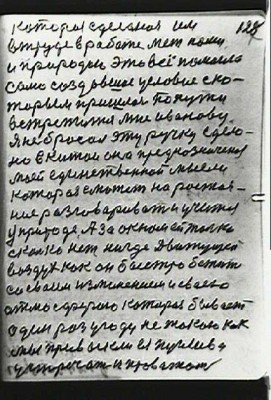 128
которая сделаная им
в труде в работе, мет
и природы Это всё помогло
само создавшее условие ско-
торым пришлось по пути
встретится мне иванову.
Я не бросал эту ручку сдела-
но в Китае она предназначена
моей единственной мысли
которая сможет на растоя-
ние разговаривать и учится
у природе. А за окном её только
сколко нет нигде движущей
воздух как он быстро бежит
со своим изменением и своею
атмосферою которая бывает
один раз угоду не такою как
мы привыкли ея
встречать и провожать